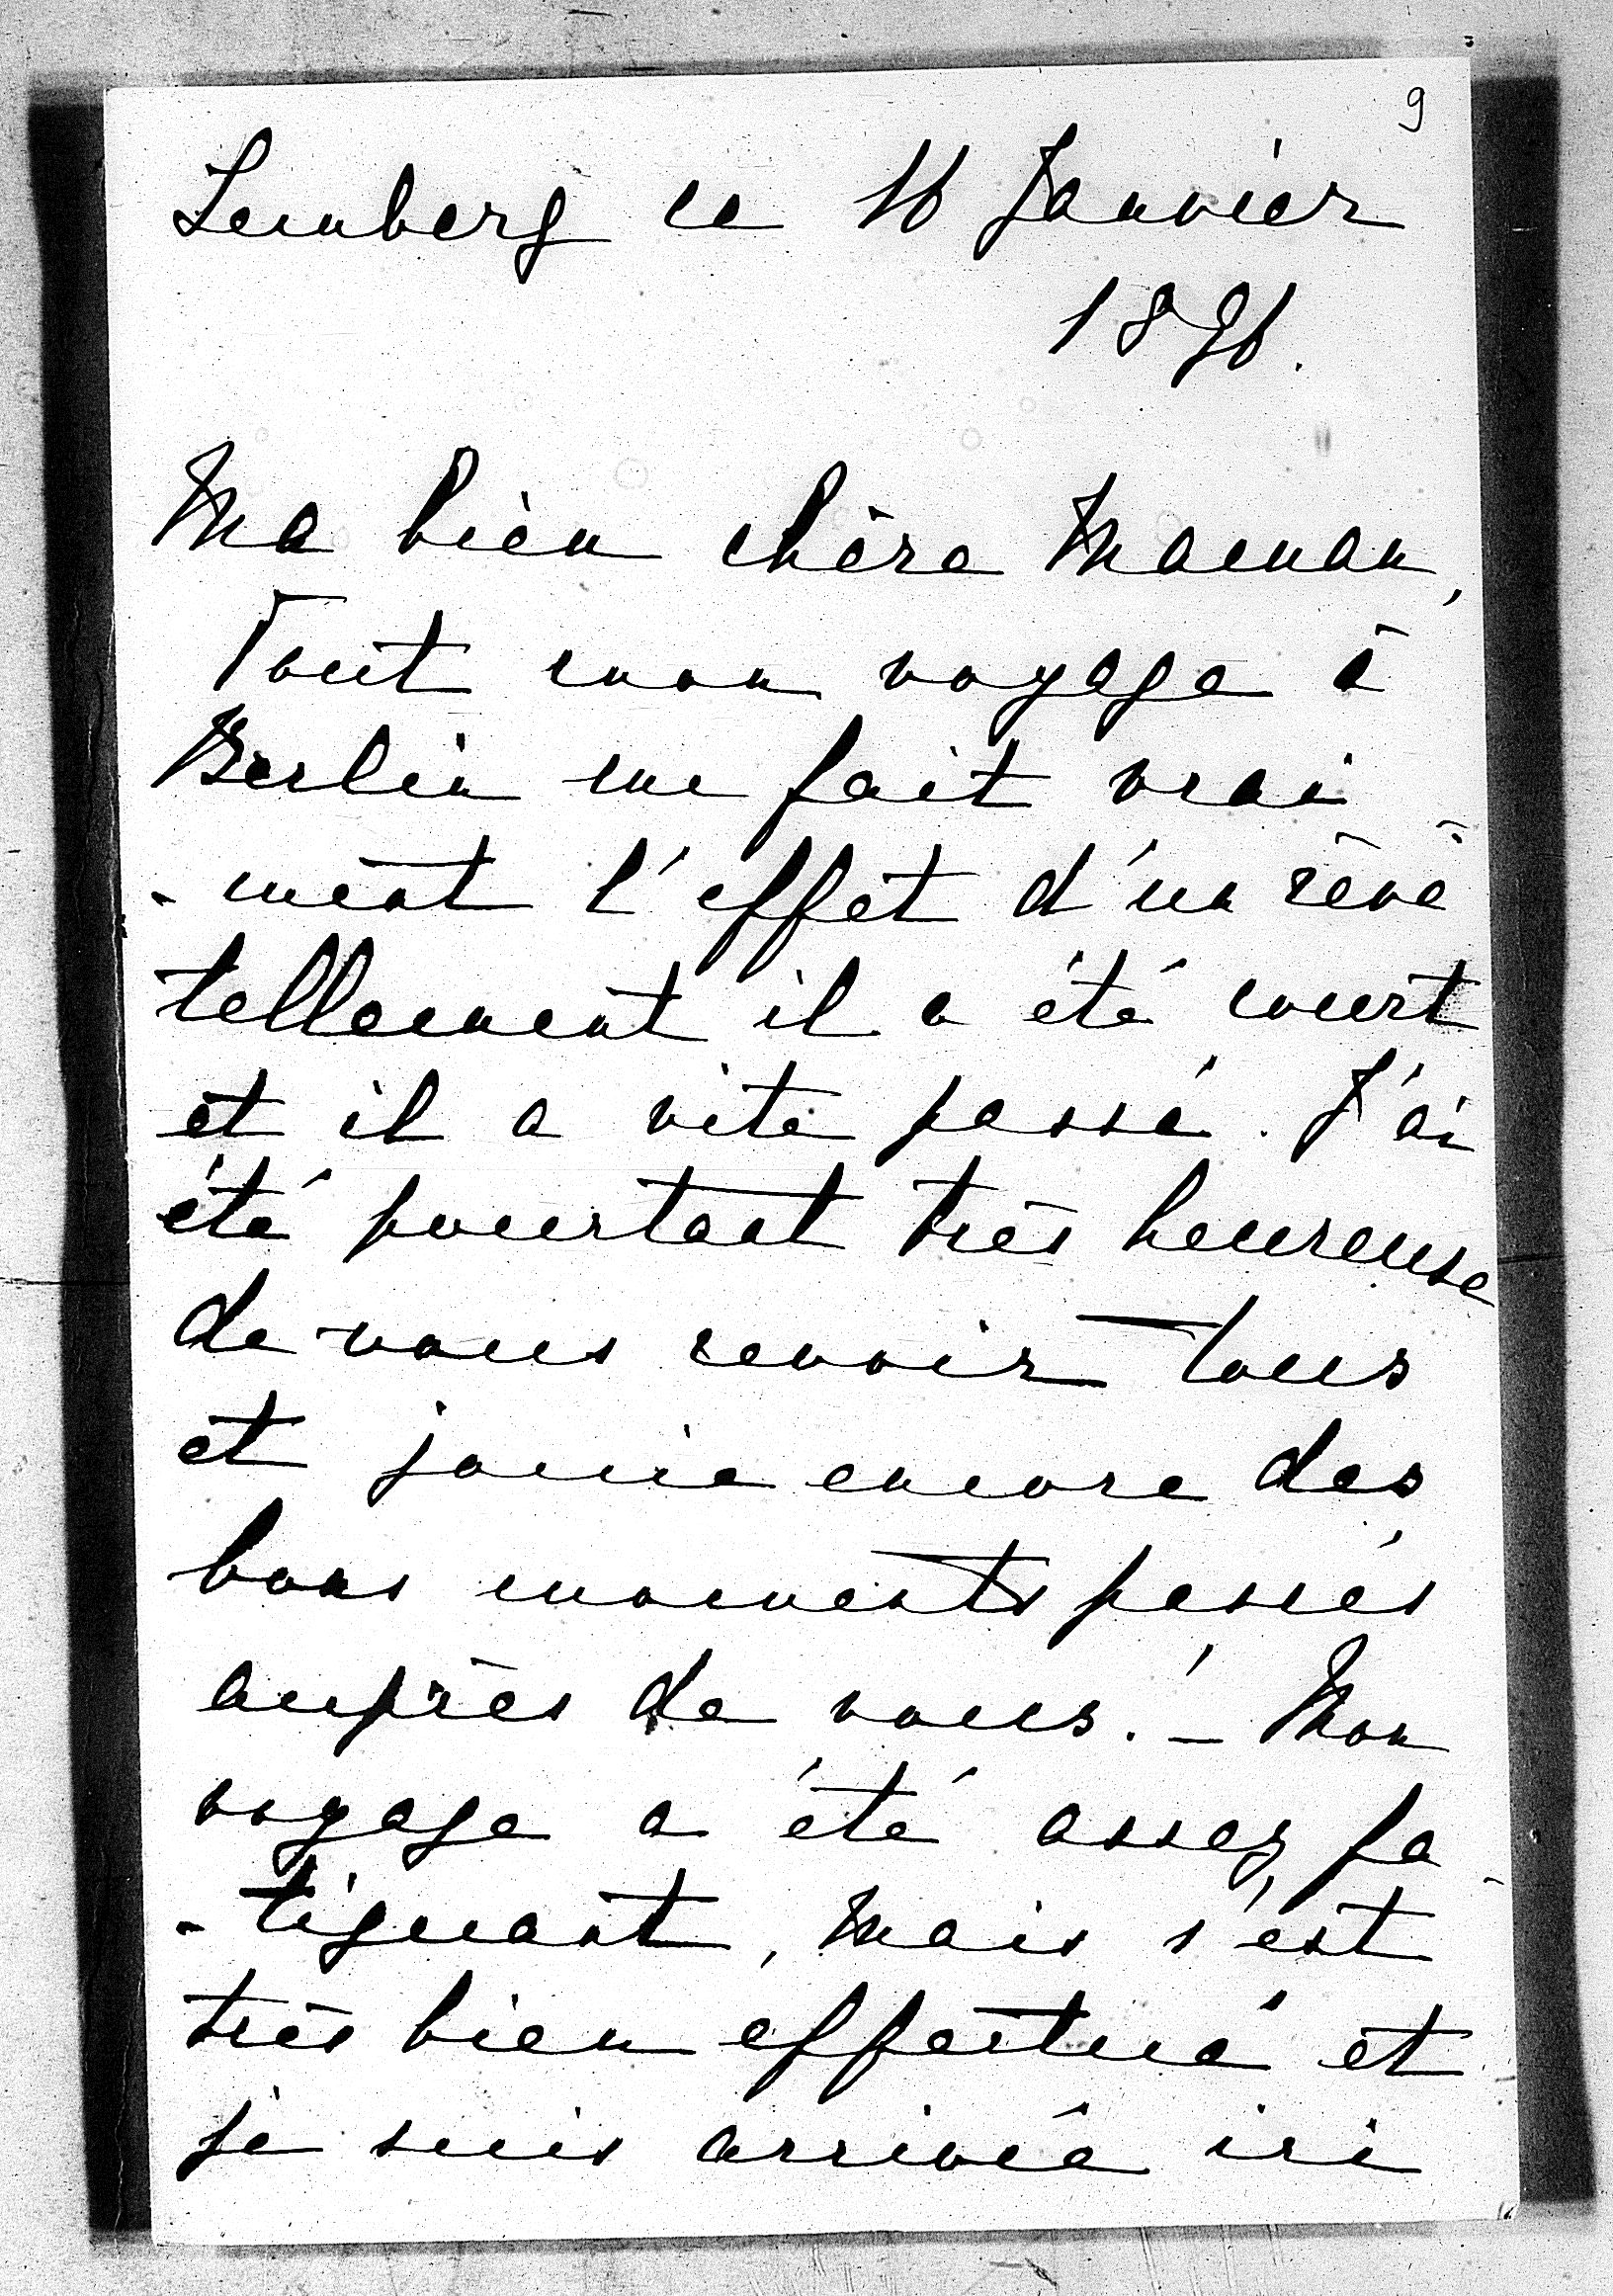 9
Lemberg ce 16 Janvier
1896.
Ma bien chère Maman,
Tout mon voyage à
Berlin me fait vrai
-ment l'effet d'un rêve
tellement il a été court
et il a vite passé. J'ai
été pourtant très heureuse
de vous revoir tous
et jouie encore des
bons moments passés
auprès de vous. - Mon
voyage a été assez fa
-tiguant, mais s'est
très bien effectué et
je suis arrivée ici